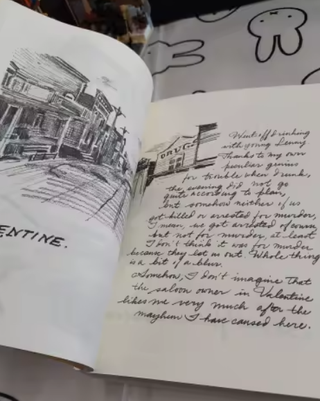 ENTINE.
DRUGS
Went off drinking
with young Lenny.
Thanks to my own
peculiar genius
for trouble when drunk,
the evening did not go
quite according to plan,
but somehow neither of us
got killed or arrested for murder,
I mean, we got arrested of course
but not for murder, at least
I don't think it was for murder
because they let us out. Whole thing
is a bit of a blur.
Somehow, I don't imagine that
the saloon owner in Valentine
likes me very much after the
mayhem I have caused here.